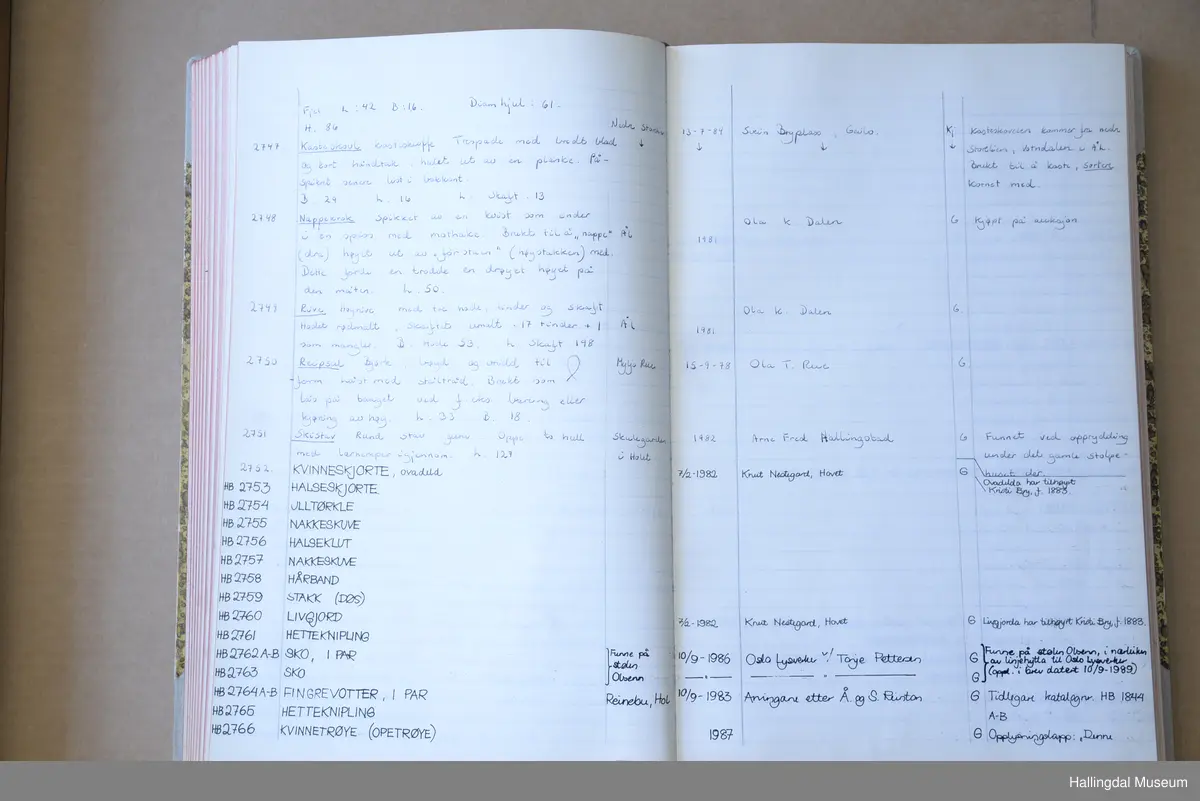 Fjel L: 42 B: 16. Diam hjul: 61.
H. 86
2747 Kasteskovl kasteskuffe Trespade med bredt blad 13-7-84 Svein Bryplass, Geilo. Kj. Kasteskovlen kommer fra nedre
og kort håndtak, holet ut av en planke. På- Brukt til å kaste, sorten
Kornet med.
B. 24 L. 16 L. Skaft. 13
2748 Nappekrok spikket av en kvist som ender Ola K Dalen G Kjøpt på auksjon
i en spiss med mothake. Brukt til å „nappe" ÅL 1981
(dra) høyet ut av (høystakken) med.
Dette gjorde en trodde en drøyet høyet på
den måten. L. 50.
2749 Rive Høyrive med tre Ola K. Dalen G.
Hodet rødmalt, skaftet umalt. 17 tinder + 1 ÅL 1981
som mangler. B. Hode 53. L Skaft 198
2750 Reipsal Bjørk, bend og vridd til 15-9-78 Ola T. Reue G.
form med ståltråd. Brukt som
lås på bandet ved f.eks. bæring eller
kjøring av høy. L. 33 B. 18.
2751 Skistav Rund stav Oppe to hull Skulegarden 1982 Arne Fred Hallingstad G Funnet ved opprydding
med lærremper igjennom. L. 127 i Holet under det gamle stolpe-
huset der.
2752. KVINNESKJORTE, ovadeld 7/2-1982 Knut Nestegard, Hovet G Ovadelda har tilhøyrt
Kristi Bry, f. 1883.
HB 2753 HALSESKJORTE
HB 2754 ULLTØRKLE
HB 2755 NAKKESKUVE
HB 2756 HALSEKLUT
HB 2757 NAKKESKUVE
HB 2758 HÅRBAND
HB 2759 STAKK (DØS)
HB 2760 LIVGJORD 7/2-1982 Knut Nestegard, Hovet G Livgjorda har tilhøyrt Kristi Bry, f. 1883.
HB 2761 HETTEKNIPLING
HB 2762 A-B SKO, 1 PAR Funne på stølen Olsenn 10/9-1986 Oslo Lysverker v/ Torje Petteren G Funne på stølen Olsenn, i nærleiken
av linjehytta til Oslo Lysverker
HB 2763 SKO G (oppl. i brev datert 10/9-1989)
HB 2764 A-B FINGREVOTTER, 1 PAR Reinebu, Hol 10/9-1983 Arvingane etter Å. og S. G Tidlegare katalognr. HB 1844
A-B
HB 2765 HETTEKNIPLING
HB 2766 KVINNETRØYE (OPETRØYE) 1987 G Opplysningslapp: „Denne
Hallingdal Museum